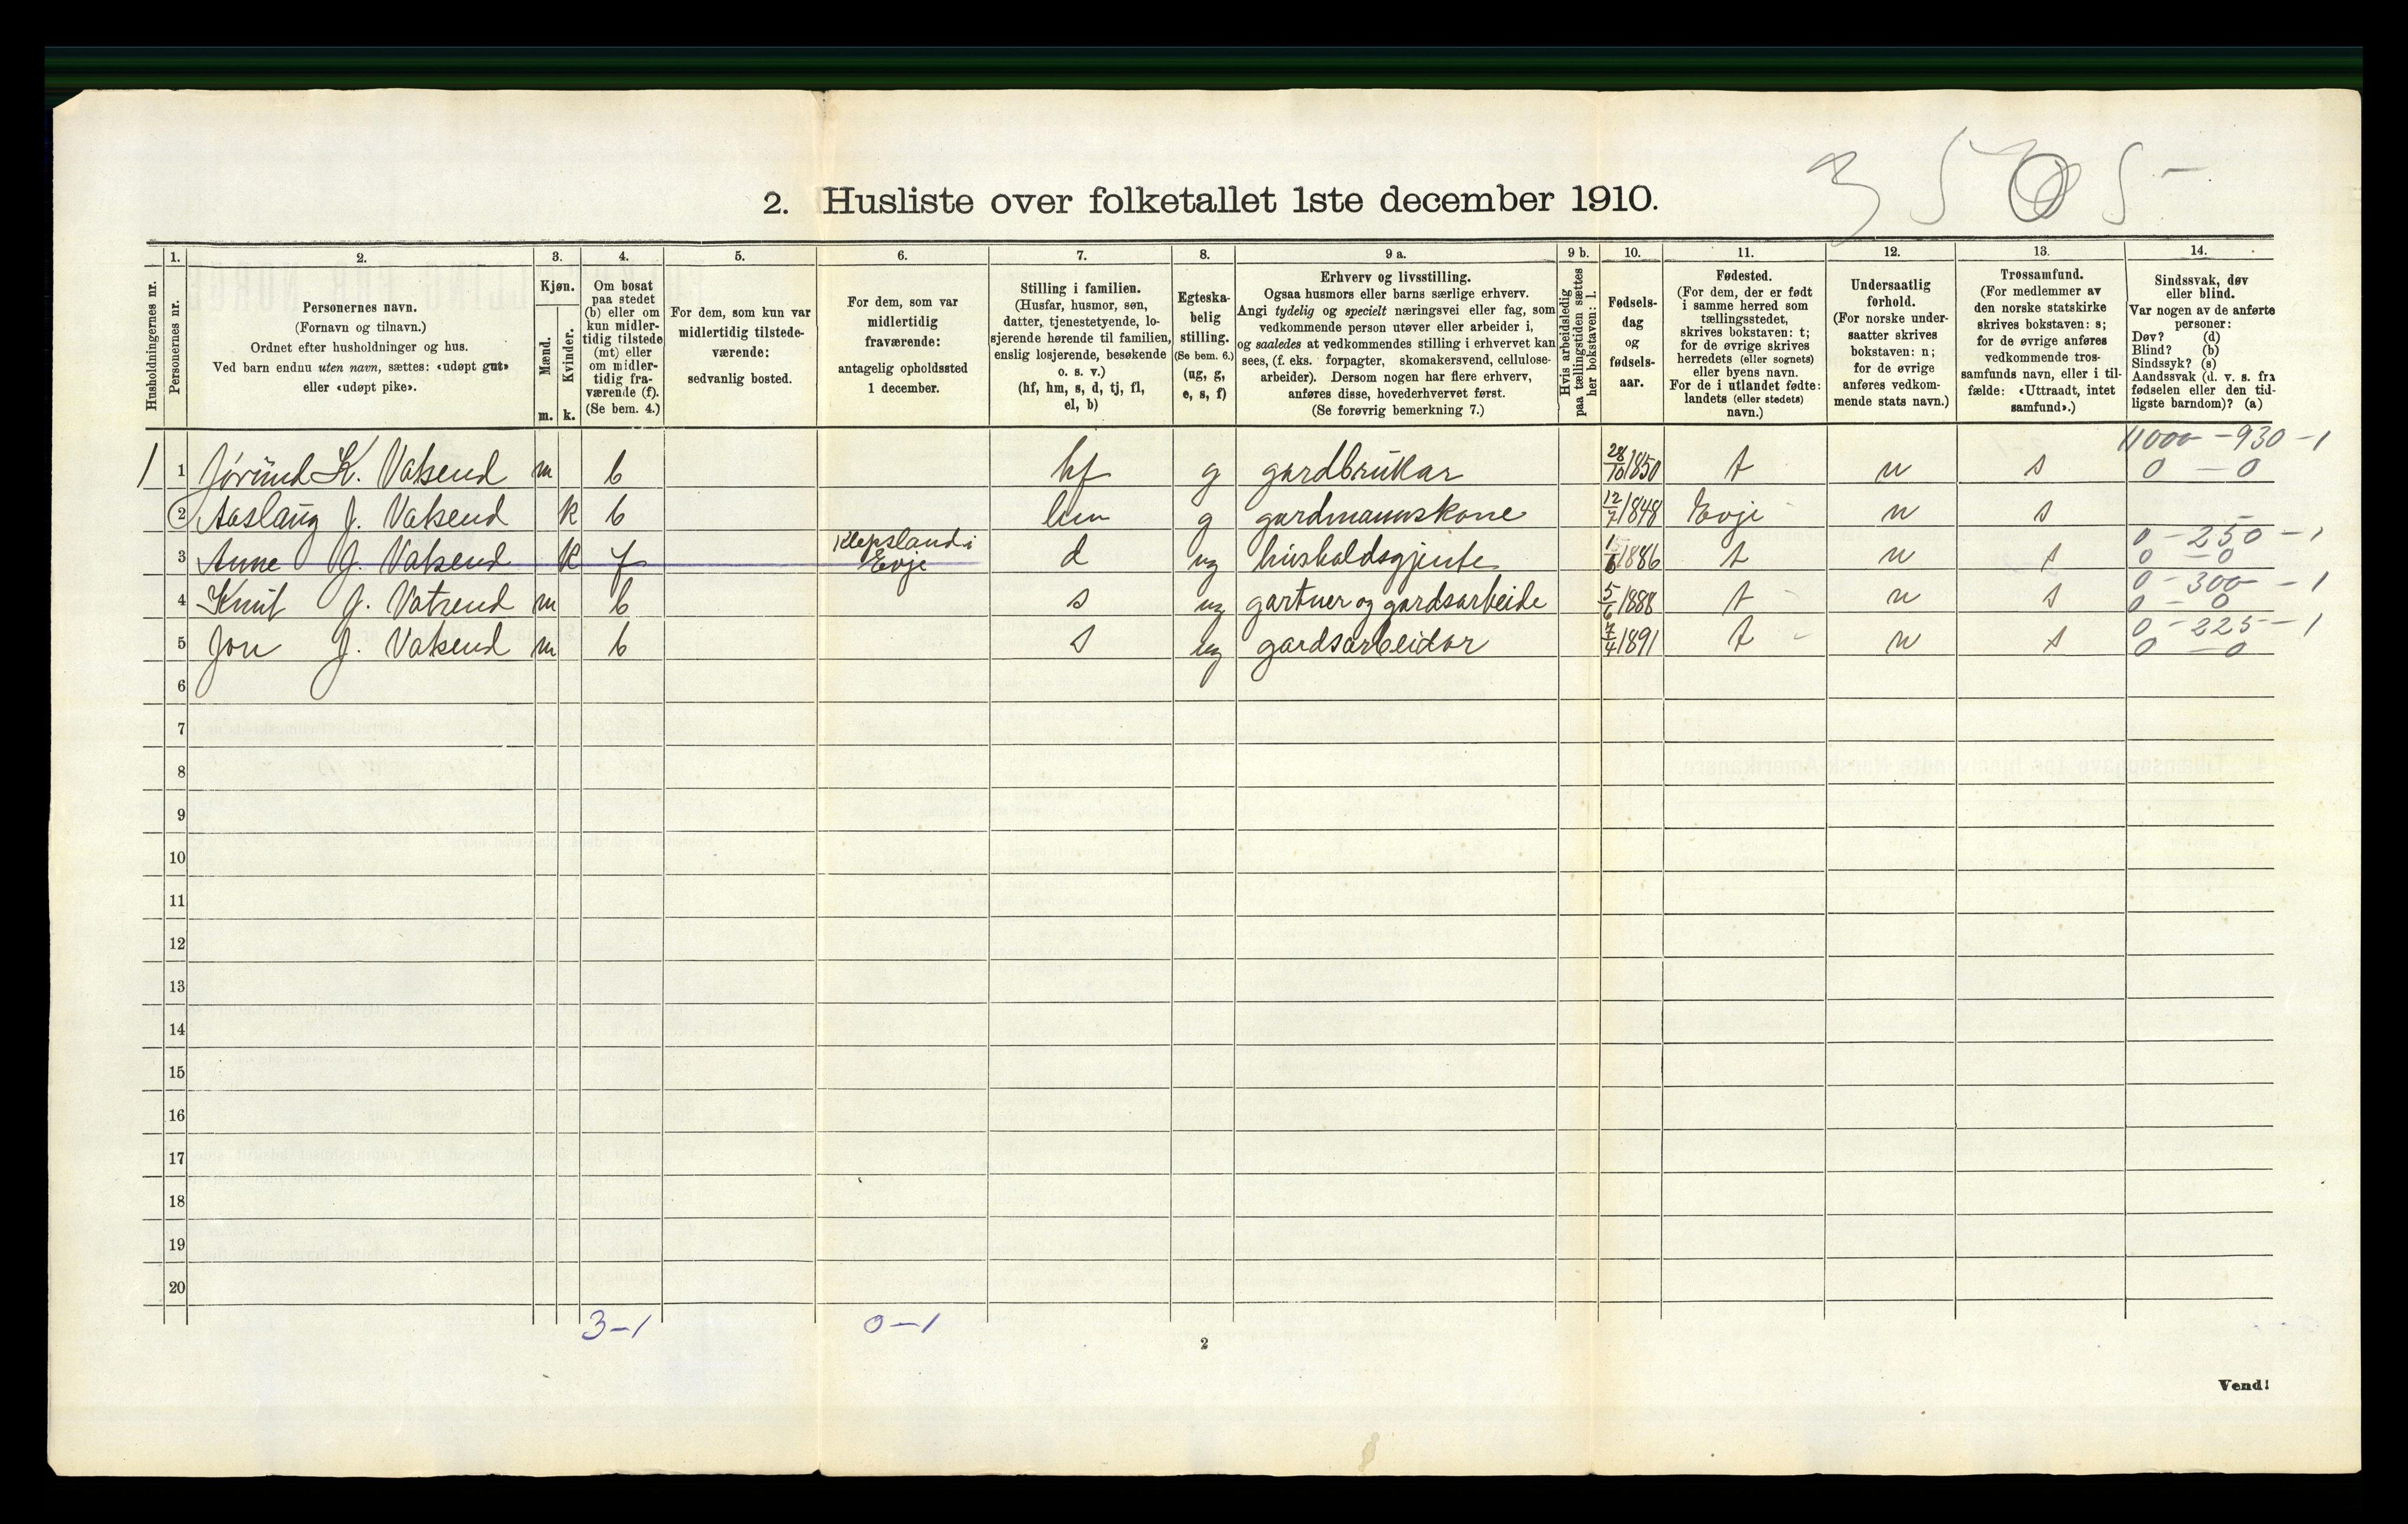 3505-
2. Husliste over folketallet 1ste december 1910.
Husholdningernes nr.
1.
Personernes nr.
2.
Personernes navn.
(Fornavn og tilnavn.)
Ordnet efter husholdninger og hus.
Ved barn endnu uten navn, sættes: «udøpt gut»
eller «udøpt pike».
3.
Kjøn.
Mænd.
m.
Kvinder.
k.
4.
Om bosat
paa stedet
(b) eller om
kun midler-
tidig tilstede
(mt) eller
om midler-
tidig fra-
værende (f).
(Se bem. 4.)
5.
For dem, som kun var
midlertidig tilstede-
værende:
sedvanlig bosted.
6.
For dem, som var
midlertidig
fraværende:
antagelig opholdssted
1 december.
7.
Stilling i familien.
(Husfar, husmor, søn,
datter, tjenestetyende, lo-
sjerende hørende til familien,
enslig losjerende, besøkende
o. s. v.)
(hf, hm, s, d, tj, fl,
el, b)
8.
Egteska-
belig
stilling.
(Se bem. 6.)
(ug, g,
e, s, f)
9 a.
Erhverv og livsstilling.
Ogsaa husmors eller barns særlige erhverv.
Angi tydelig og specielt næringsvei eller fag, som
vedkommende person utøver eller arbeider i,
og saaledes at vedkommendes stilling i erhvervet kan
sees, (f. eks. forpagter, skomakersvend, cellulose-
arbeider). Dersom nogen har flere erhverv,
anføres disse, hovederhvervet først.
(Se forøvrig bemerkning 7.)
9 b.
Hvis arbeidsledig
paa tællingstiden sættes
her bokstaven: l.
10.
Fødsels-
dag
og
fødsels-
aar.
11.
Fødested.
(For dem, der er født
i samme herred som
tællingsstedet,
skrives bokstaven: t;
for de øvrige skrives
herredets (eller sognets)
eller byens navn.
For de i utlandet fødte:
landets (eller stedets)
navn.)
12.
Undersaatlig
forhold.
(For norske under-
saatter skrives
bokstaven: n;
for de øvrige
anføres vedkom-
mende stats navn.)
13.
Trossamfund.
(For medlemmer av
den norske statskirke
skrives bokstaven: s;
for de øvrige anføres
vedkommende tros-
samfunds navn, eller i til-
fælde: «Uttraadt, intet
samfund».)
14.
Sindssvak, døv
eller blind.
Var nogen av de anførte
personer:
Døv? (d)
Blind? (b)
Sindssyk? (s)
Aandssvak (d. v. s. fra
fødselen eller den tid-
ligste barndom)? (a)
11000 - 930 - 1
1 1 Jørund K. Vatsend m b hf g gardbrukar 28/10 1850 t n s 0 - 0
2 Aaslaug J. Vatsend k b hm g gardmannskone 12/7 1848 Evje n s
Klepsland i 0 - 250 - 1
3 Anne J. Vatsend k f Evje d ug husholdsgjente 1/6 1886 t n s 0 - 0
0 - 300 - 1
4 Knut J. Vatsend m b s ug gartner og gardsarbeide 5/6 1888 t n s 0 - 0
0 - 225 - 1
5 Jon J. Vatsend m b s ug gardsarbeidar 7/4 1891 t n s 0 - 0
6
7
8
9
10
11
12
13
14
15
16
17
18
19
20
3-1 0-1
2
Vend!